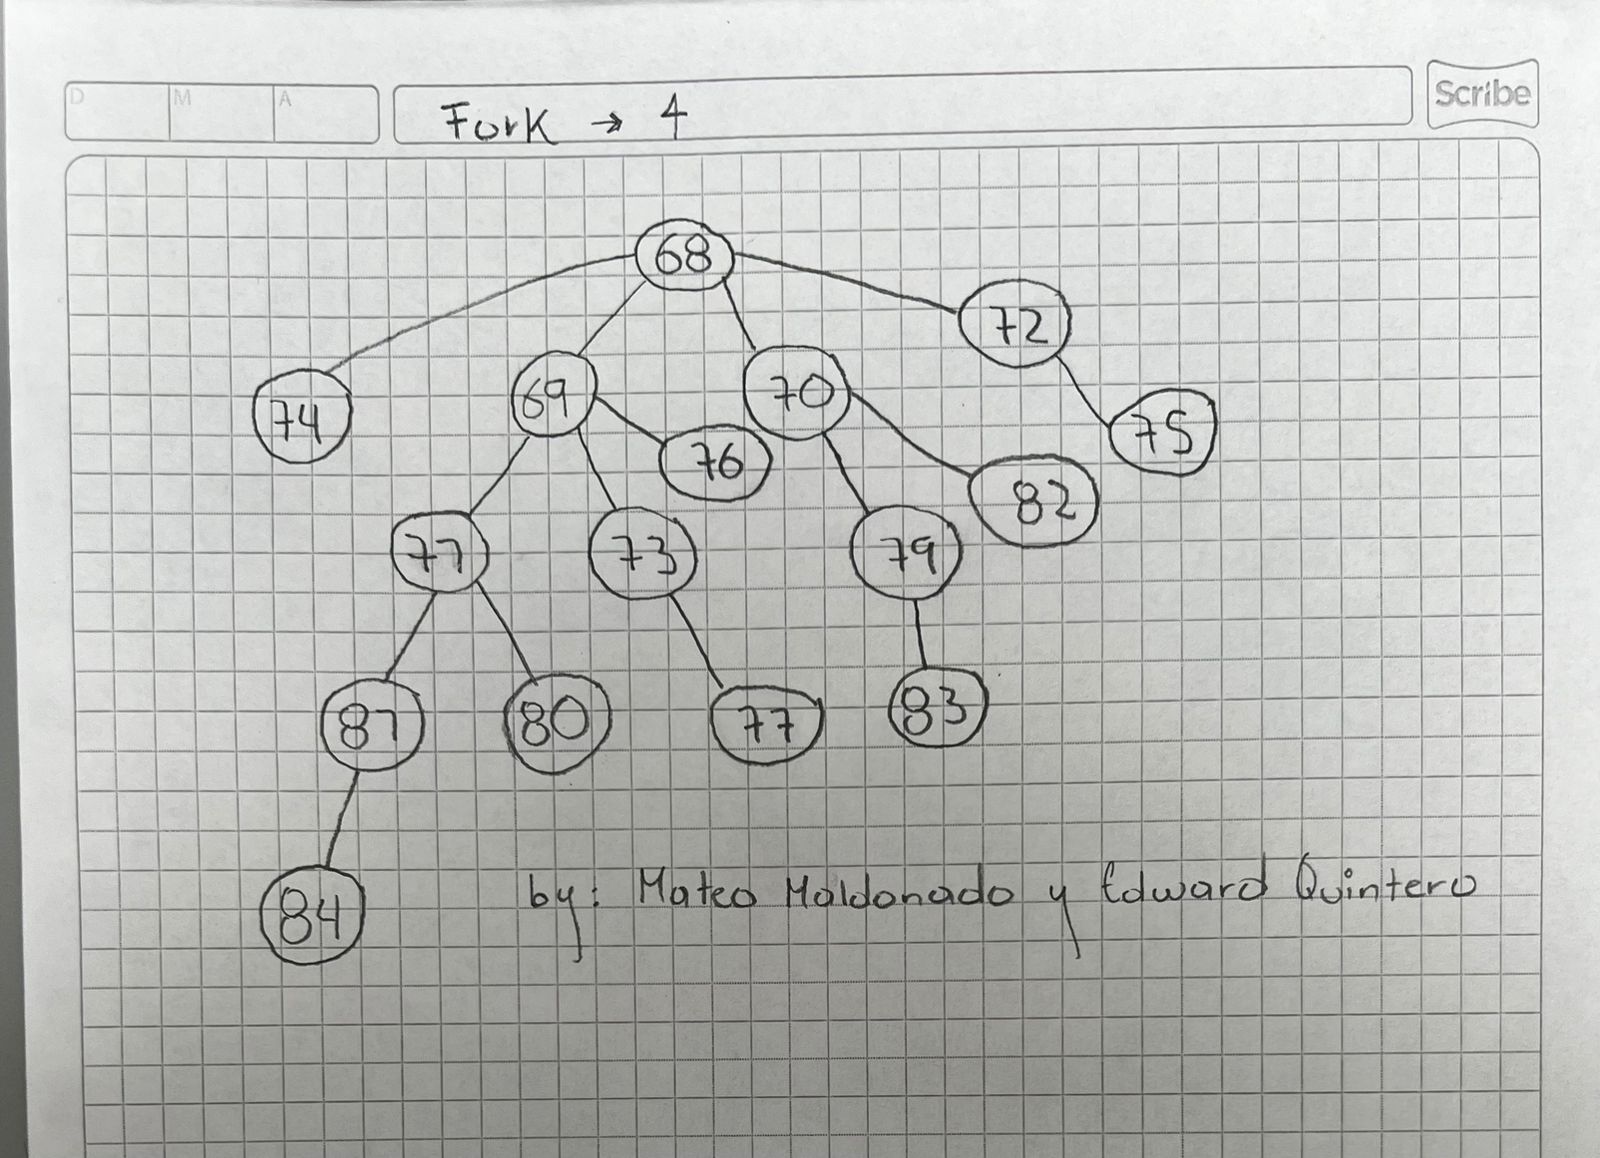 D M A
Fork → 4
Scribe
68
72
74 69 70 75
76
82
77 73 79
87 80 77 83
84
by: Mateo Maldonado y Edward Quintero